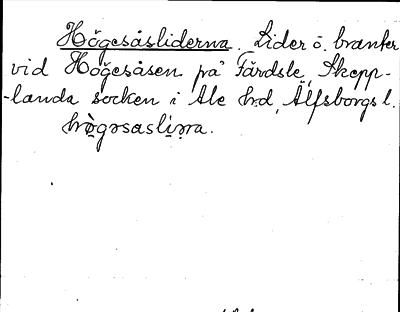 Högesåsliderna. Lider o. branter
vid Högesåsen på Färdsle, Skepp-
-landa socken i Ale hrd, Älfsborgs l.